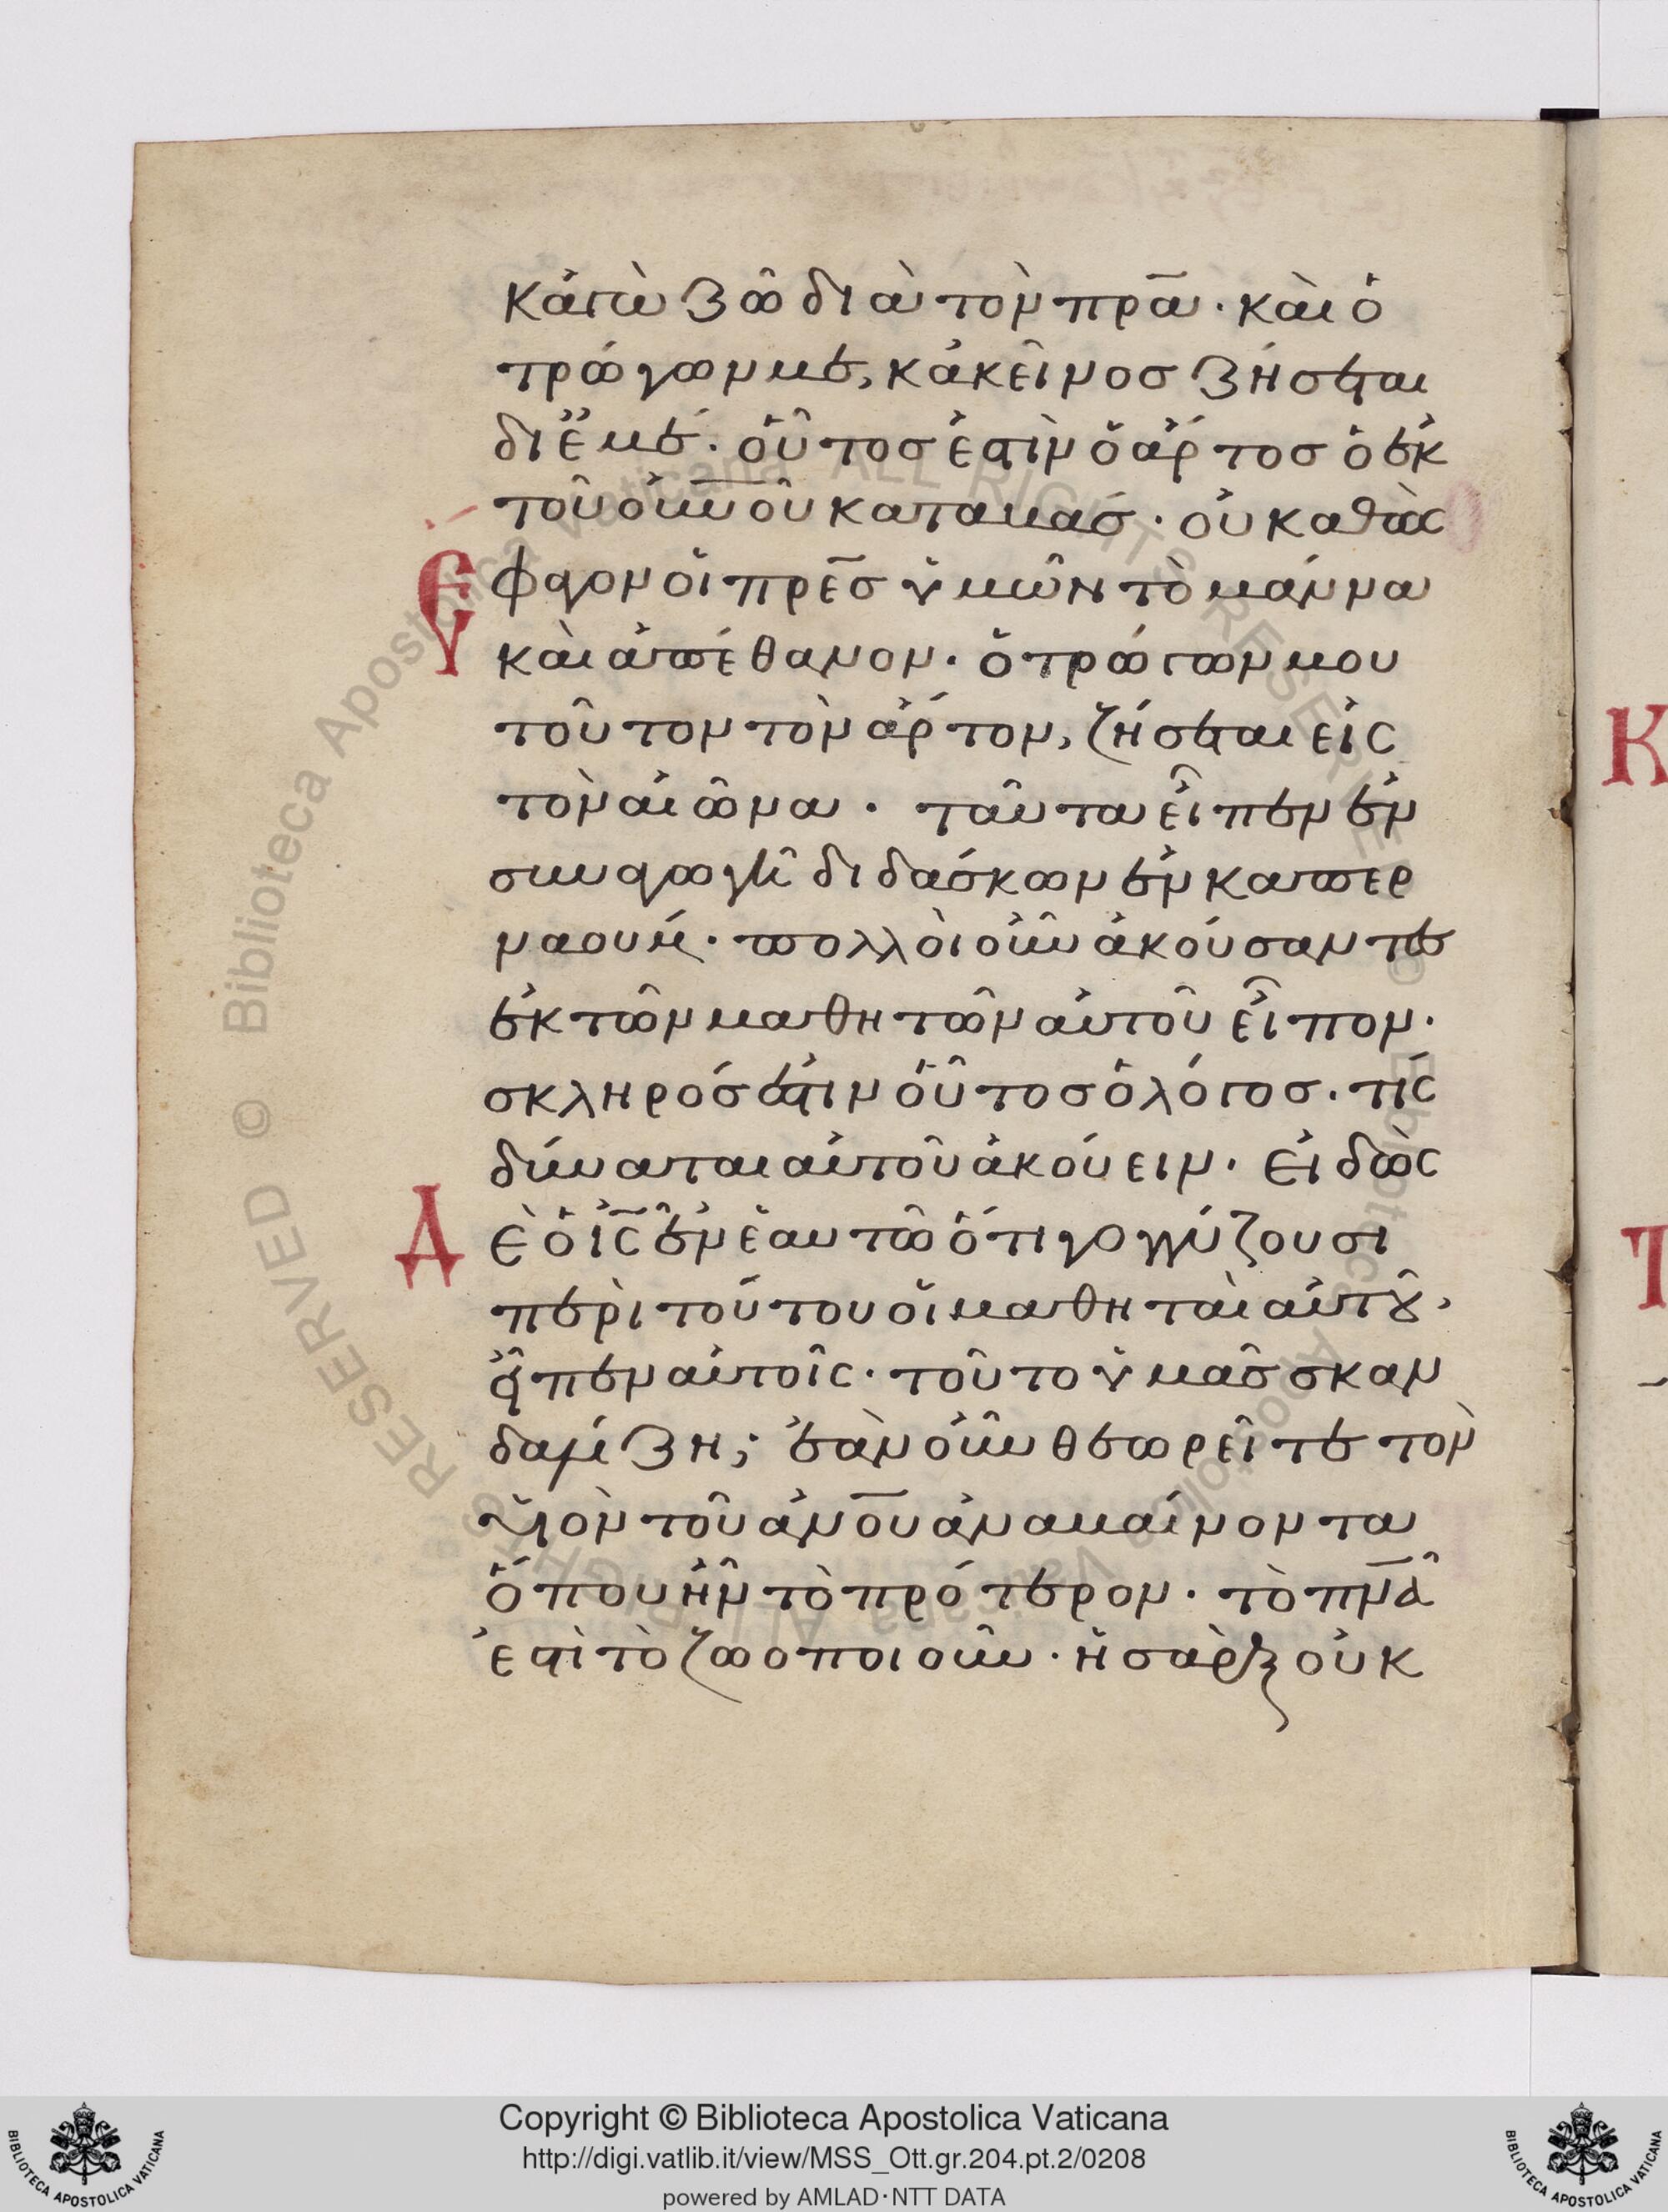 κἀγὼ ζῶ διὰ τὸν πρ̅α· καὶ ὁ
τρώγων με, κἀκεῖνος ζήσεται
δι ἐμέ· οὗτος ἐστὶν ὁ ἄρτος ὁ ἐκ
τοῦ οὐ̅νοῦ καταβάς· οὐ καθὼς
ἔφαγον οἱ πρ̅ες ὑμῶν τὸ μάννα
καὶ ἀπέθανον· ὁ τρώγων μου
τοῦτον τὸν ἄρτον, ζήσεται εἰς
τὸν αἰῶνα· ταῦτα εἶπεν ἐν
συναγωγῆ διδάσκων ἐν καπερ
ναουμ· πολλοὶ οὖν ἀκούσαντες
ἐκ τῶν μαθητῶν αὐτοῦ εἶπον·
σκληρός ἐστιν οὗτος ὁ λόγος· τίς
δύναται αὐτοῦ ἀκούειν· εἰδὼς
Δὲ ὁ ἰ̅ς ἐν ἑαυτῶ ὅτι γογγύζουσι
περὶ τούτου οἱ μαθηταὶ αὐτοῦ,
εἶπεν αὐτοῖς· τοῦτο ὑμᾶς σκαν
δαλίζη; ἐὰν οὖν θεωρεῖτε τὸν
υἱὸν τοῦ ἀν̅ου ἀναβαίνοντα
ὅπου ἦν τὸ πρότερον· τὸ πν̅α
ἐστὶ τὸ ζωοποιοῦν· ἡ σὰρξ οὐκ
Κ
Τ
Copyright © Biblioteca Apostolica Vaticana
http://digi.vatlib.it/view/MSS_Ott.gr.204.pt.2/0208
powered by AMLAD·NTT DATA
BIBLIOTECA APOSTOLICA VATICANA
BIBLIOTECA APOSTOLICA VATICANA